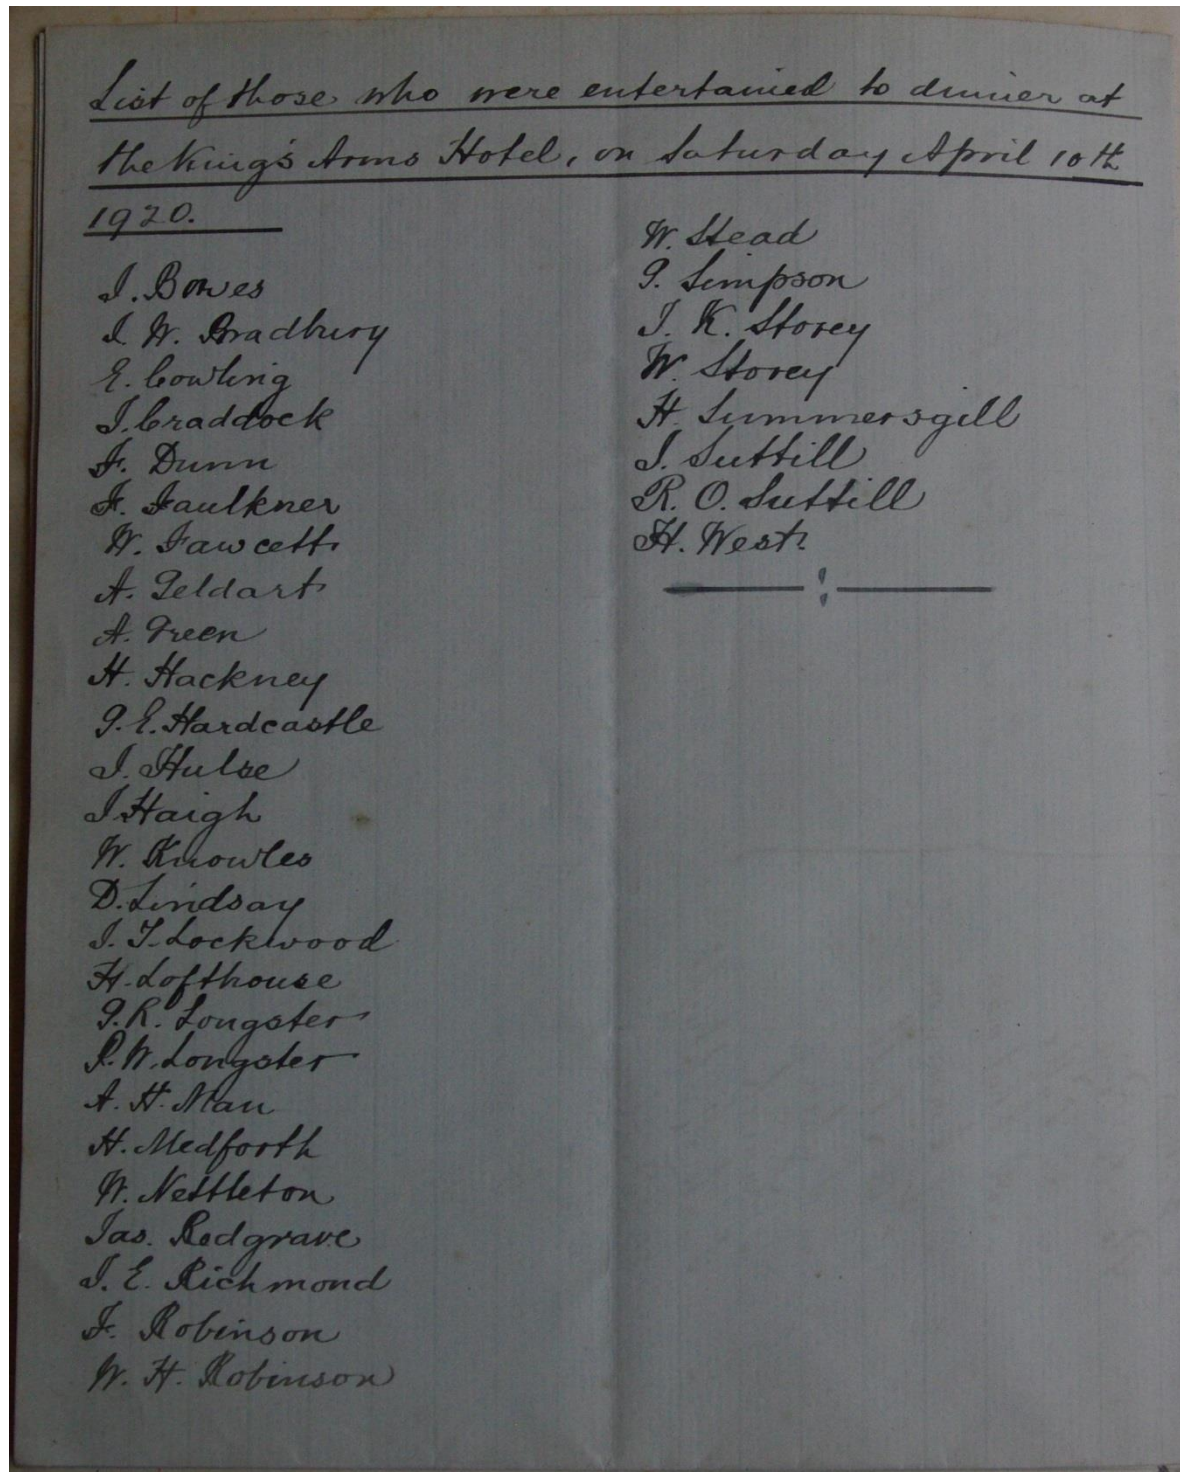 List of those who were entertained to dinner at
the King's Arms Hotel, on Saturday April 10th
1920.
J. Bowes
J. W. Bradbury
E. Cowling
J. Craddock
F. Dunn
F. Faulkner
W. Fawcett
A. Geldart
A. Green
H. Hackney
G. E. Hardcastle
J. Hulse
J Haigh
W. Knowles
D. Lindsay
J. T. Lockwood
H. Lofthouse
G. R. Longster
R. W. Longster
A. H. Man
H. Medforth
W. Nettleton
Jas. Redgrave
J. E. Richmond
F. Robinson
W. H. Robinson
W. Stead
G. Simpson
J. K. Storey
W. Storey
H. Summersgill
J. Suttill
R. O. Suttill
H. West